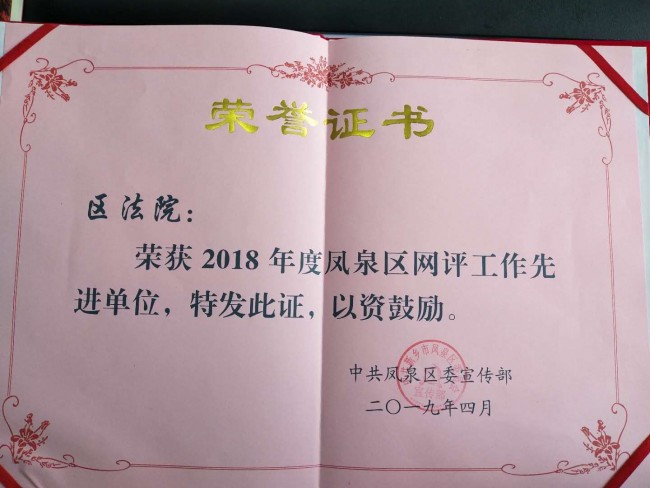 荣誉证书
区法院：
荣获 2018 年度凤泉区网评工作先
进单位，特发此证，以资鼓励。
中共凤泉区委宣传部
二〇一九年四月
宣传部